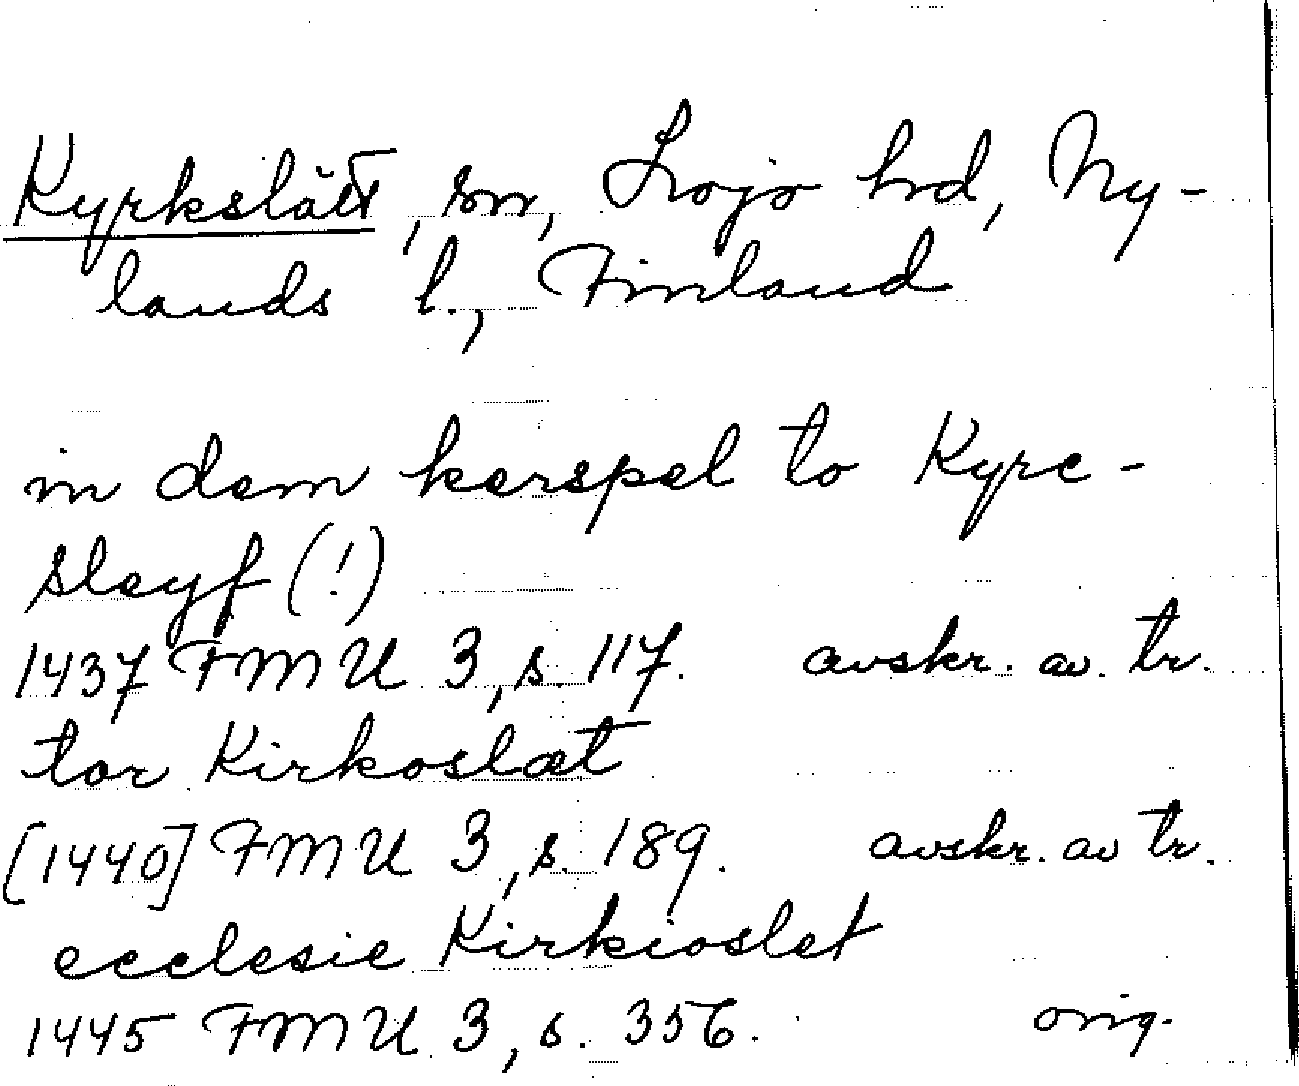 Kyrkslätt, sn, Lojo hrd, Ny-
lands l., Finland
in dem kerspel to Kyrc-
sleyf (!)
1437 FMU 3, s. 117. avskr. av. tr.
tor Kirkoslæt
[1440] FMU 3, s. 189. avskr. av tr.
ecclesie Kirkioslet
1445 FMU 3, s. 356. orig.